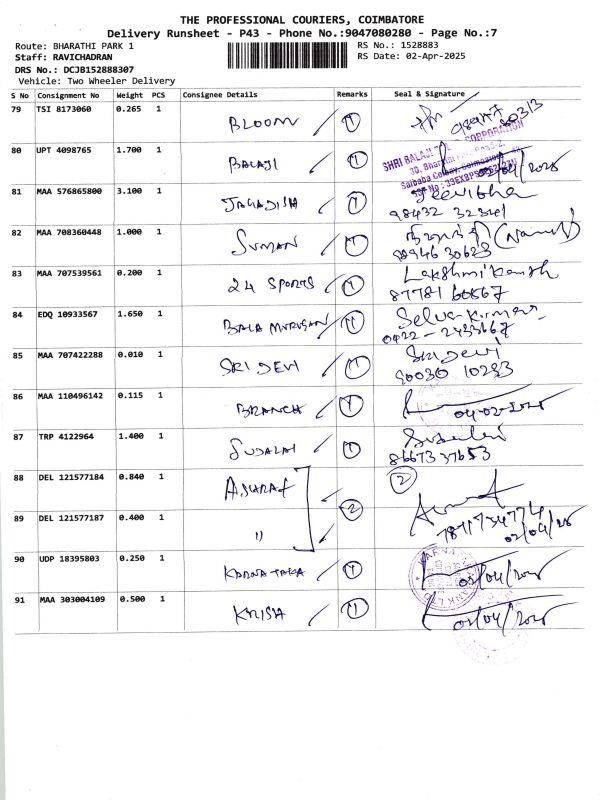 THE PROFESSIONAL COURIERS, COIMBATORE
Delivery Runsheet - P43 - Phone No.:9047080280 - Page No.:7
Route: BHARATHI PARK 1 RS No.: 1528883
Staff: RAVICHADRAN RS Date: 02-Apr-2025
DRS No.: DCJB152888307
Vehicle: Two Wheeler Delivery
S No Consignment No Weight PCS Consignee Details Remarks Seal & Signature
79 TSI 8173060 0.265 1 BLOOM 1
80 UPT 4098765 1.700 1 BALAJI 1 SHRI BALAJI CORPORATION
02/04/2025
81 MAA 576865800 3.100 1 JAGADISH 1
98432 32341
82 MAA 708360448 1.000 1 SUMAN 1
89946 30623
83 MAA 707539561 0.200 1 24 SPORTS 1 Lakshmikanth
87781 60667
84 EDQ 10933567 1.650 1 BALA MURUGAN 1 Selvakumar
0422-2433667
85 MAA 707422288 0.010 1 SRI DEVI 1 Sri Devi
90030 10293
86 MAA 110496142 0.115 1 BRANCH 1 04-02-2025
87 TRP 4122964 1.400 1 SUDALAI 1
8667337653
88 DEL 121577184 0.840 1 ASHRAF 2 2
7871734774
89 DEL 121577187 0.400 1 " 02/04/25
90 UDP 18395803 0.250 1 KARNATAKA 1 02/04/2025
91 MAA 303004109 0.500 1 KRISH 1 02/04/2025